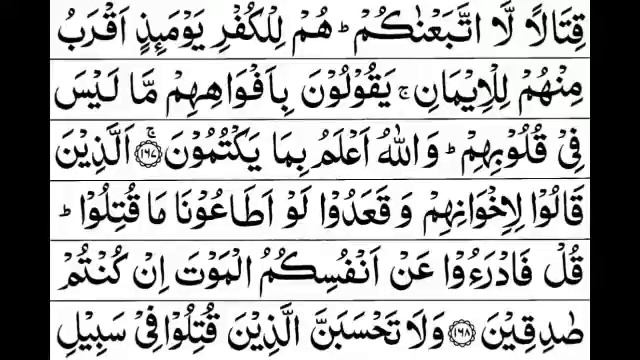 قِتَالًا لَّا اتَّبَعْنٰكُمْ ؕ هُمْ لِلْكُفْرِ يَوْمَئِذٍ اَقْرَبُ
مِنْهُمْ لِلْاِيْمَانِ ۚ يَقُوْلُوْنَ بِاَفْوَاهِهِمْ مَّا لَيْسَ
فِىْ قُلُوْبِهِمْ ؕ وَاللّٰهُ اَعْلَمُ بِمَا يَكْتُمُوْنَ ۚ ﴿۱۶۷﴾ اَلَّذِيْنَ
قَالُوْا لِاِخْوَانِهِمْ وَ قَعَدُوْا لَوْ اَطَاعُوْنَا مَا قُتِلُوْا ؕ
قُلْ فَادْرَءُوْا عَنْ اَنْفُسِكُمُ الْمَوْتَ اِنْ كُنْتُمْ
صٰدِقِيْنَ ﴿۱۶۸﴾ وَلَا تَحْسَبَنَّ الَّذِيْنَ قُتِلُوْا فِىْ سَبِيْلِ